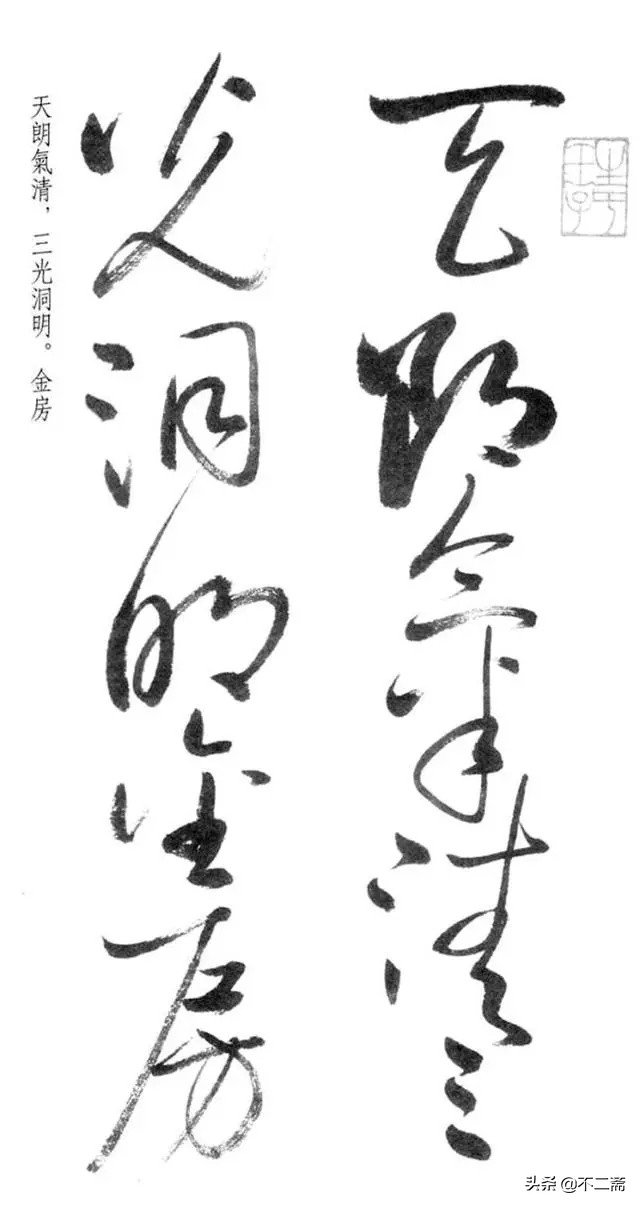 天朗氣清三
光洞明金房
天朗氣清，三光洞明。 金房
头条 @不二斋